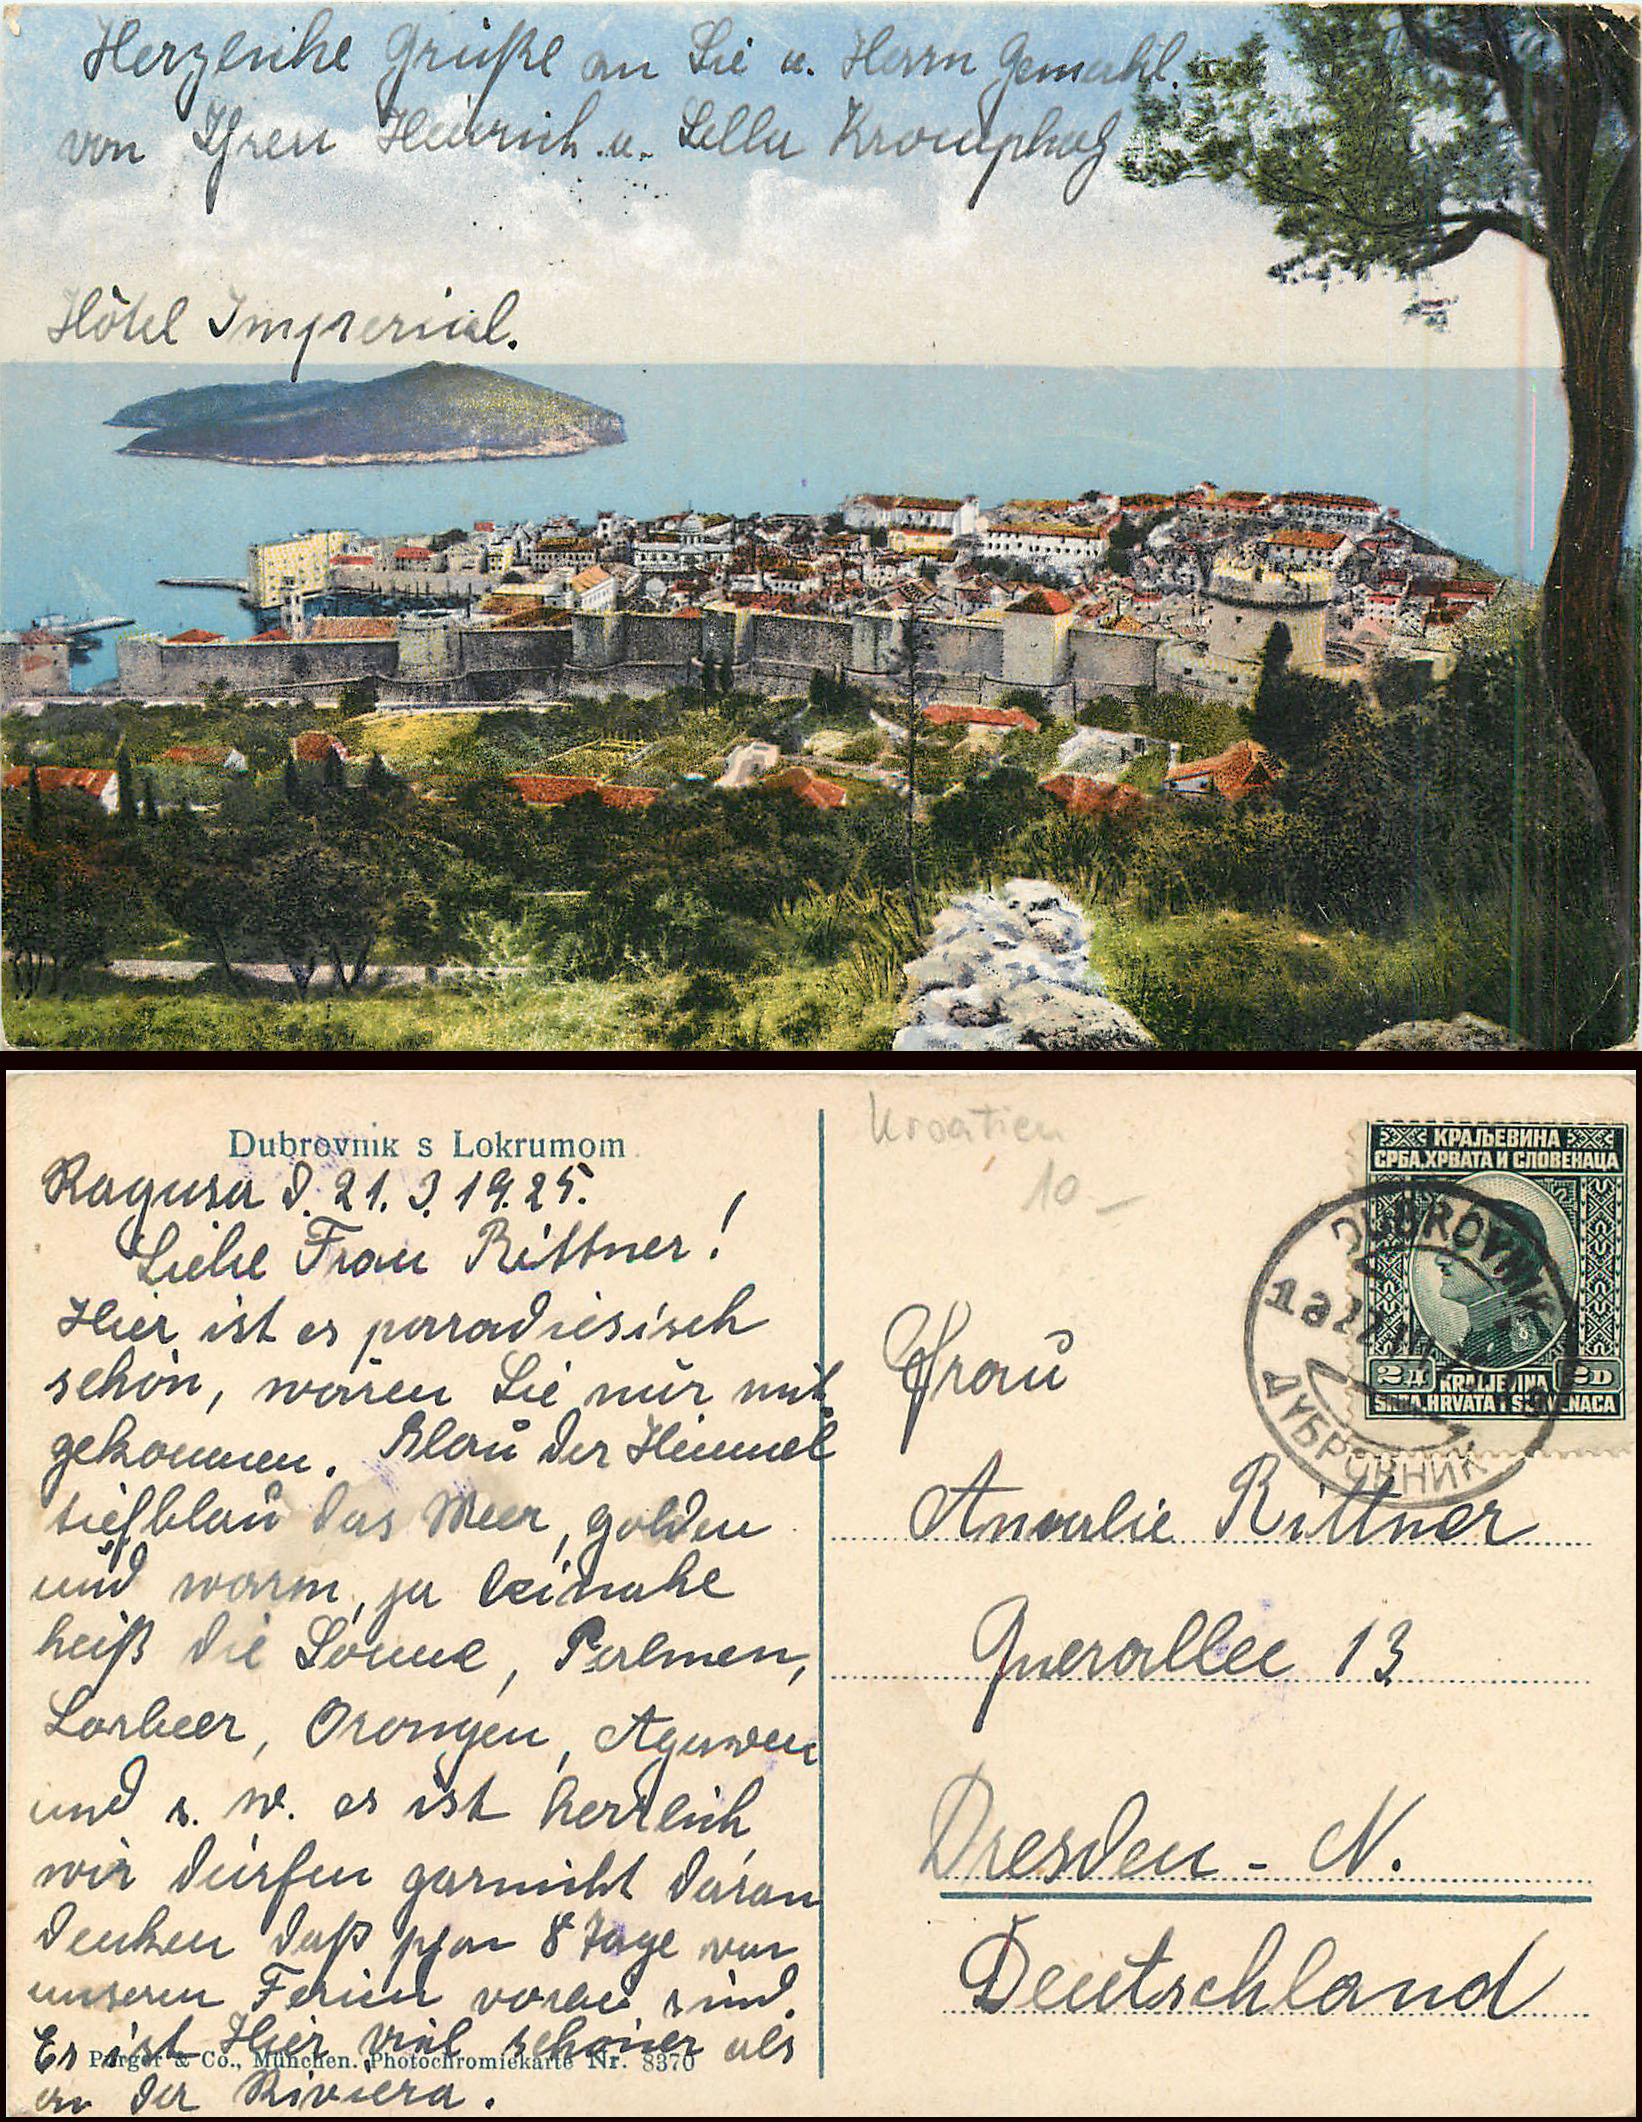 Herzliche Grüße an Sie u. Herrn Gemahl.
von Ihren Heinrich u. Lella
Hôtel Imperial.
Dubrovnik s Lokrumom
Ragusa d. 21. 3. 1925.
Liebe Frau Rittner!
Hier ist es paradiesisch
schön, wären Sie nur mit
gekommen. Blau der Himmel
tiefblau das Meer, golden
und warm, ja beinahe
heiß die Sonne, Palmen,
Lorbeer, Orangen, Agaven
und s. w. es ist herrlich,
wir dürfen garnicht daran
denken daß 8 Tage von
unseren Ferien vorbei sind.
Es ist Hier viel schöner als
an der Riviera.
Purger & Co., München. Photochromiekarte Nr. 8370
Kroatien
10-
КРАЉЕВИНА
СРБА, ХРВАТА И СЛОВЕНАЦА
2 Д 2 D
KRALJEVINA
SRBA, HRVATA I SLOVENACA
DUBROVNIK
ДУБРОВНИК
Frau
Annalie Rittner
Querallee 13
Dresden - N.
Deutschland